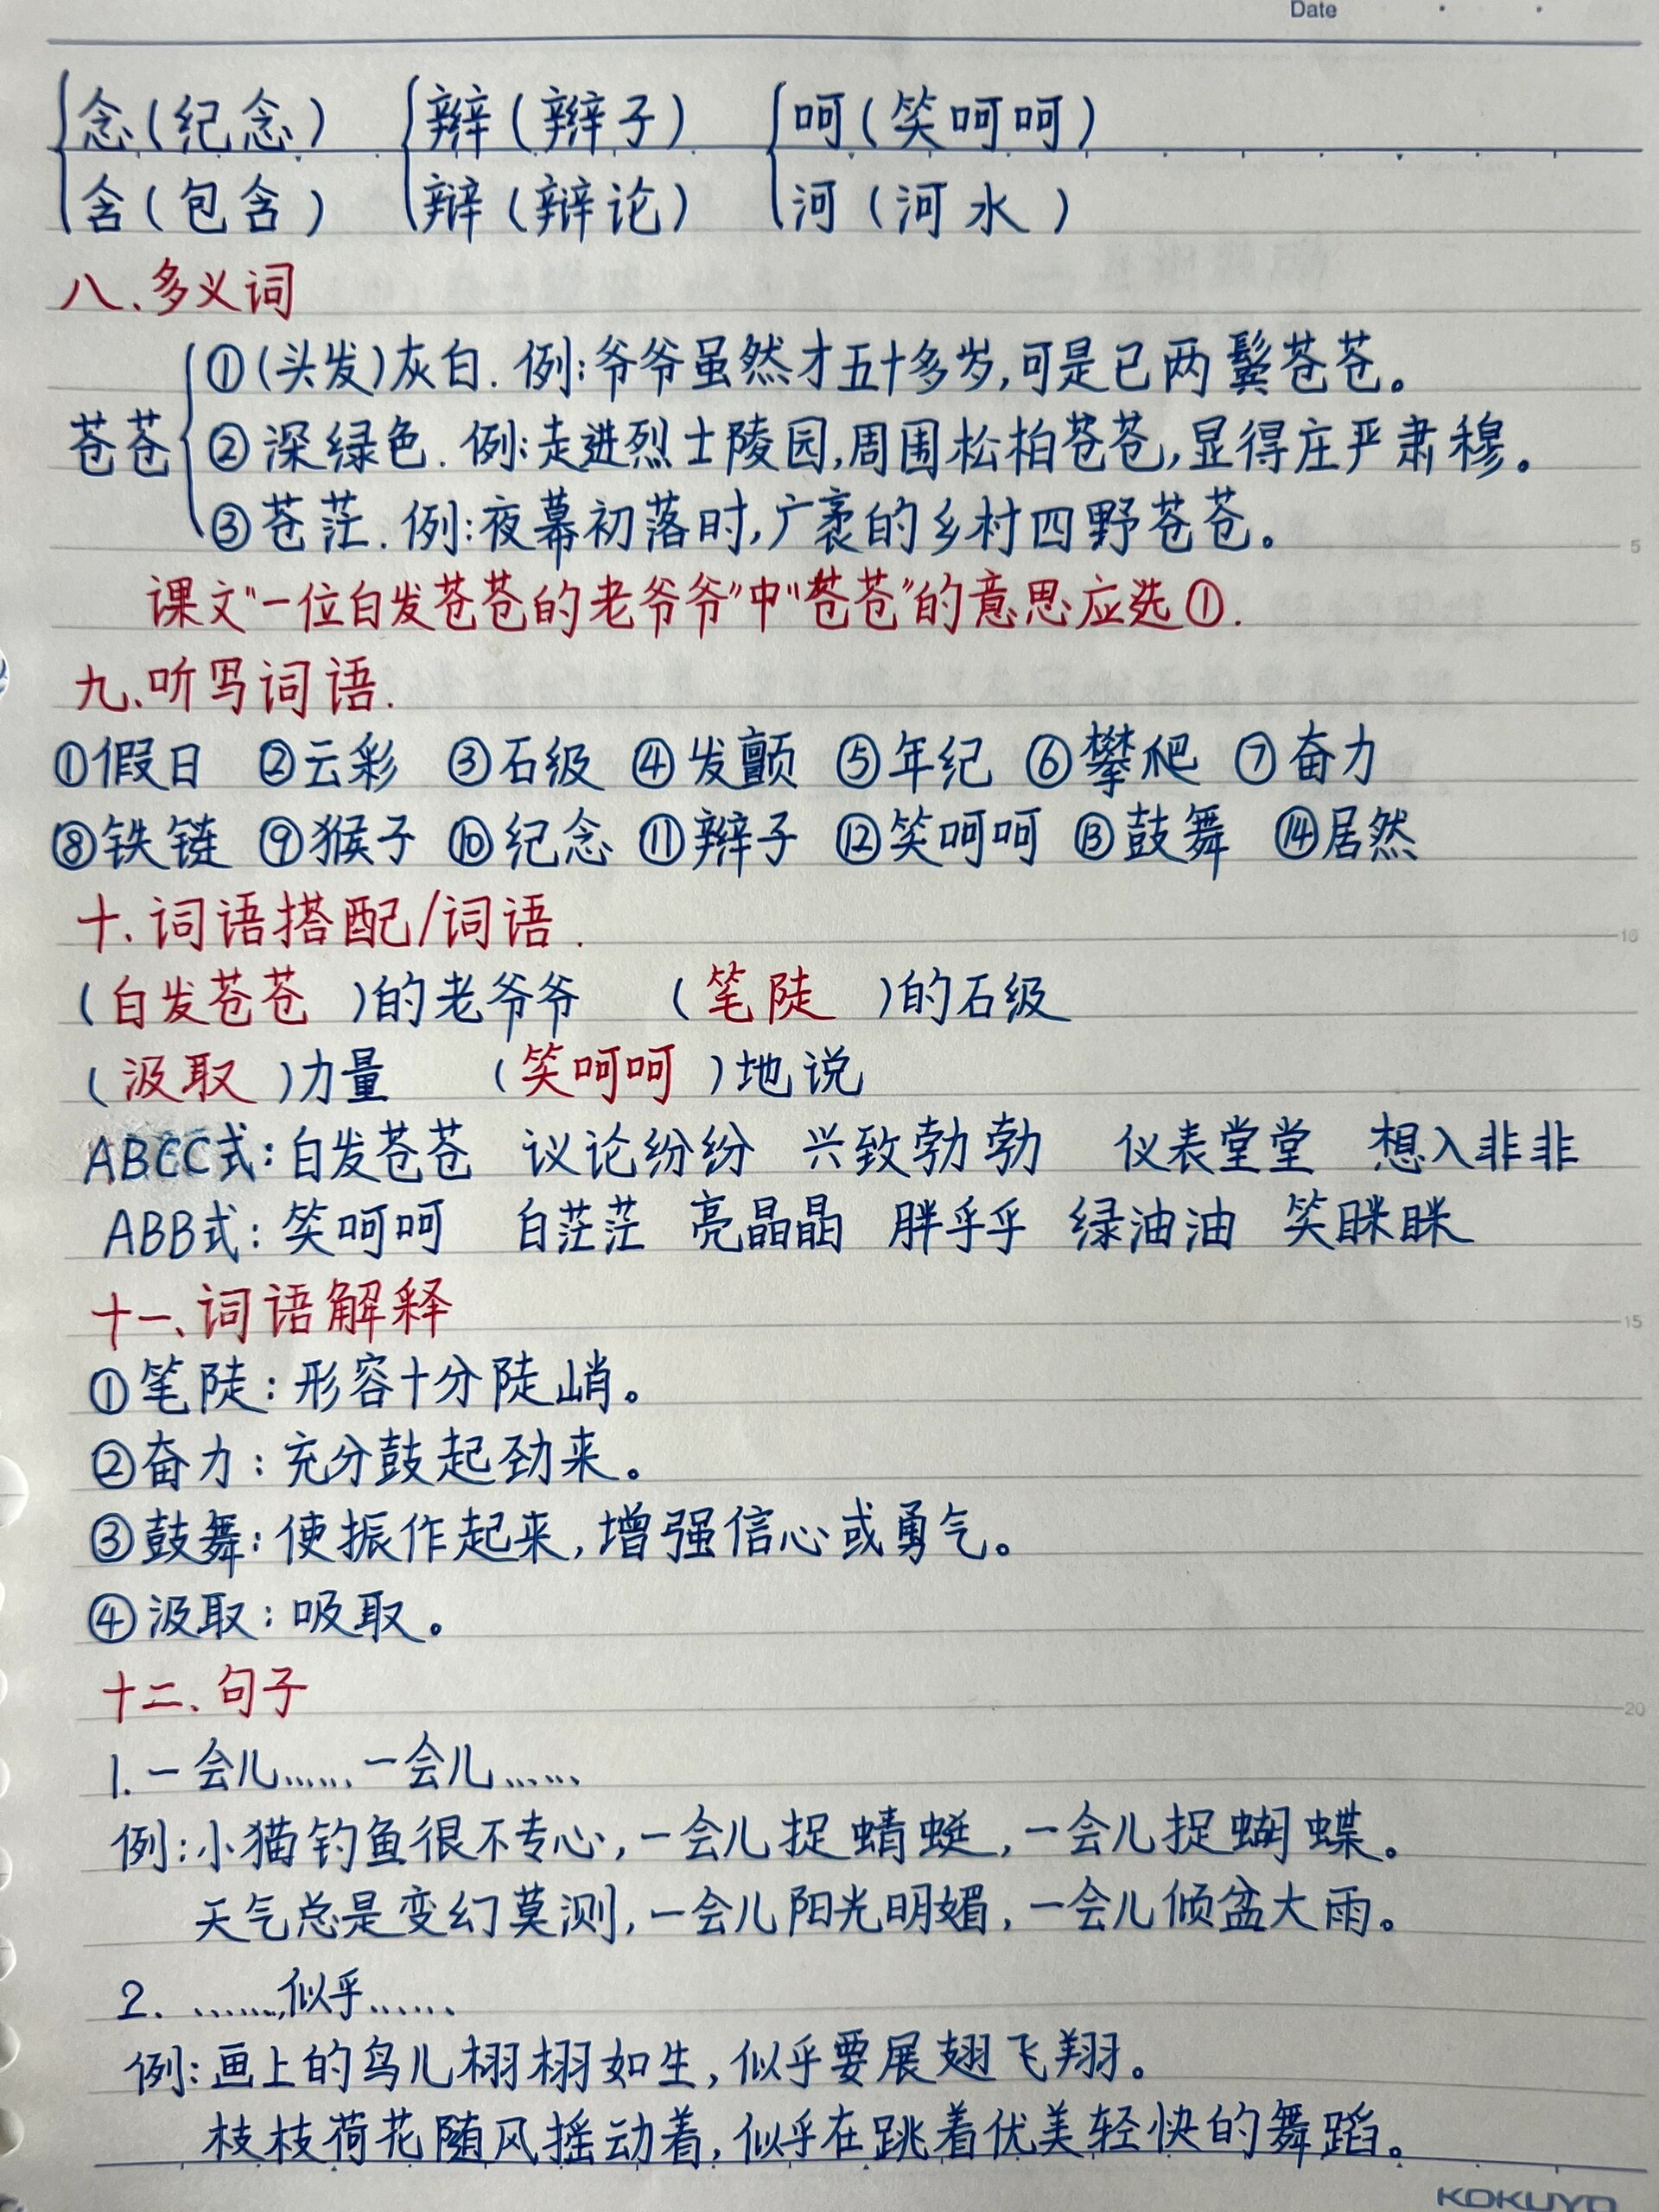 Date
念(纪念) 辫(辫子) 呵(笑呵呵)
含(包含) 辩(辩论) 河(河水)
八、多义词
①(头发)灰白. 例:爷爷虽然才五十多岁,可是已两鬓苍苍。
苍苍 ②深绿色. 例:走进烈士陵园,周围松柏苍苍,显得庄严肃穆。
③苍茫. 例:夜幕初落时,广袤的乡村四野苍苍。
课文“一位白发苍苍的老爷爷”中“苍苍”的意思应选①.
九、听写词语.
①假日 ②云彩 ③石级 ④发颤 ⑤年纪 ⑥攀爬 ⑦奋力
⑧铁链 ⑨猴子 ⑩纪念 ⑪辫子 ⑫笑呵呵 ⑬鼓舞 ⑭居然
十、词语搭配/词语.
(白发苍苍)的老爷爷 (笔陡)的石级
(汲取)力量 (笑呵呵)地说
ABCC式:白发苍苍 议论纷纷 兴致勃勃 仪表堂堂 想入非非
ABB式:笑呵呵 白茫茫 亮晶晶 胖乎乎 绿油油 笑眯眯
十一、词语解释
①笔陡:形容十分陡峭。
②奋力:充分鼓起劲来。
③鼓舞:使振作起来,增强信心或勇气。
④汲取:吸取。
十二、句子
1.一会儿……一会儿……
例:小猫钓鱼很不专心,一会儿捉蜻蜓,一会儿捉蝴蝶。
天气总是变幻莫测,一会儿阳光明媚,一会儿倾盆大雨。
2. ……似乎……
例:画上的鸟儿栩栩如生,似乎要展翅飞翔。
枝枝荷花随风摇动着,似乎在跳着优美轻快的舞蹈。
5
10
15
20
KOKUYO